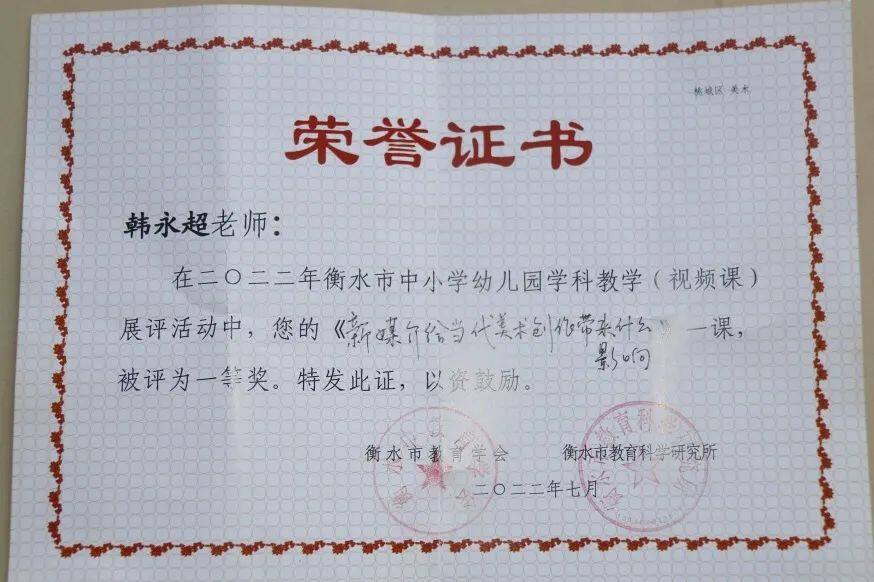 桃城区 美术
荣誉证书
韩永超老师：
在二〇二二年衡水市中小学幼儿园学科教学（视频课）
展评活动中，您的《新媒介给当代美术创作带来什么》一课，
影响
被评为一等奖。特发此证，以资鼓励。
衡水市教育学会 衡水市教育科学研究所
二〇二二年七月